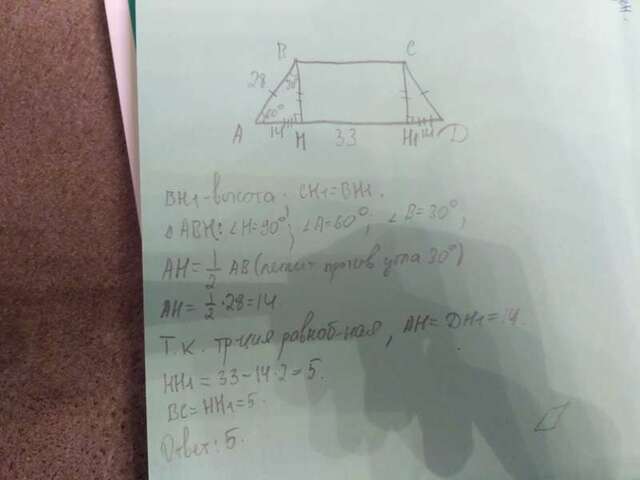 B C
28 30°
60°
A 14 H 33 H1 14 D
BH1-высота. CH1=BH1.
△ABH: ∠H=90°; ∠A=60°; ∠B=30°;
AH=1/2 AB (лежит против угла 30°)
AH=1/2·28=14
Т.к. тр-ция равноб-ная, AH=DH1=14.
HH1=33-14·2=5.
BC=HH1=5.
Ответ: 5.